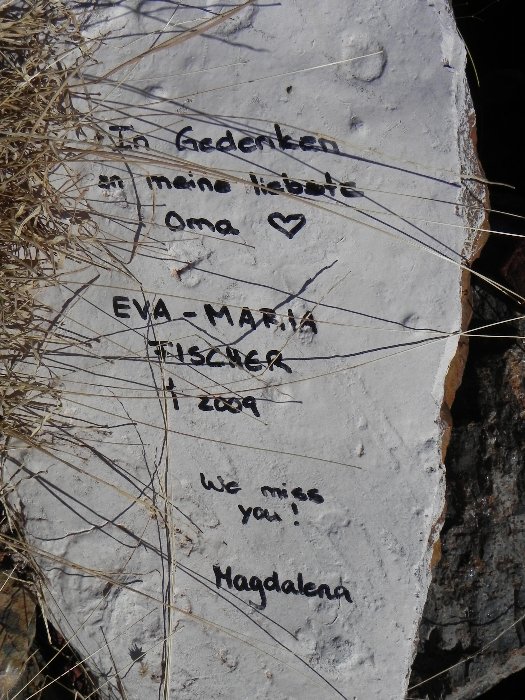 In Gedenken
an meine liebste
Oma ♡
EVA-MARIA
FISCHER
† 2009
We miss
you!
Magdalena